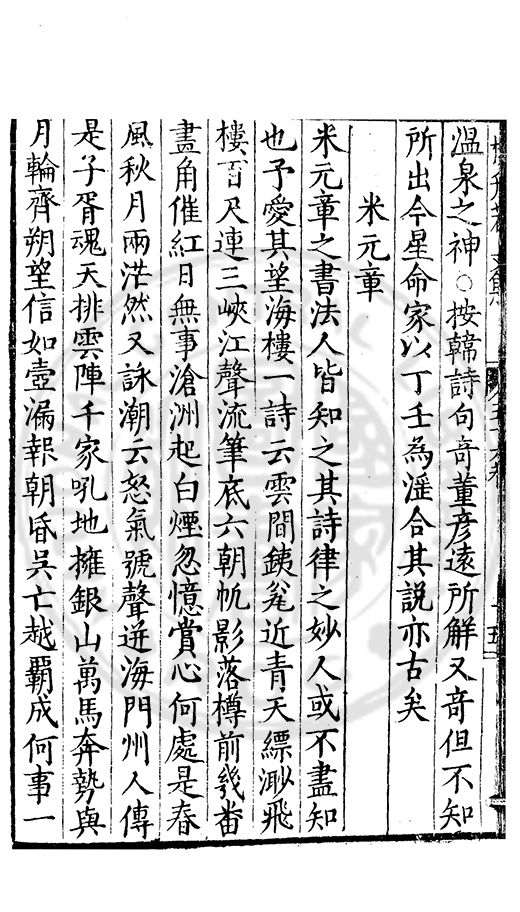 溫泉之神○按韓詩句奇董彦遠所解又奇但不知
所出今星命家以丁壬為滛合其說亦古矣
米元章
米元章之書法人皆知之其詩律之妙人或不盡知
也予愛其望海樓一詩云雲間鐵瓮近青天縹渺飛
樓百尺連三峽江聲流筆底六朝帆影落樽前幾畨
畫角催紅日無事滄洲起白煙忽憶賞心何處是春
風秋月兩茫然又詠潮云怒氣號聲迸海門州人傳
是子胥魂天排雲陣千家吼地擁銀山萬馬奔勢與
月輪齊朔望信如壺漏報朝昏吳亡越覇成何事一